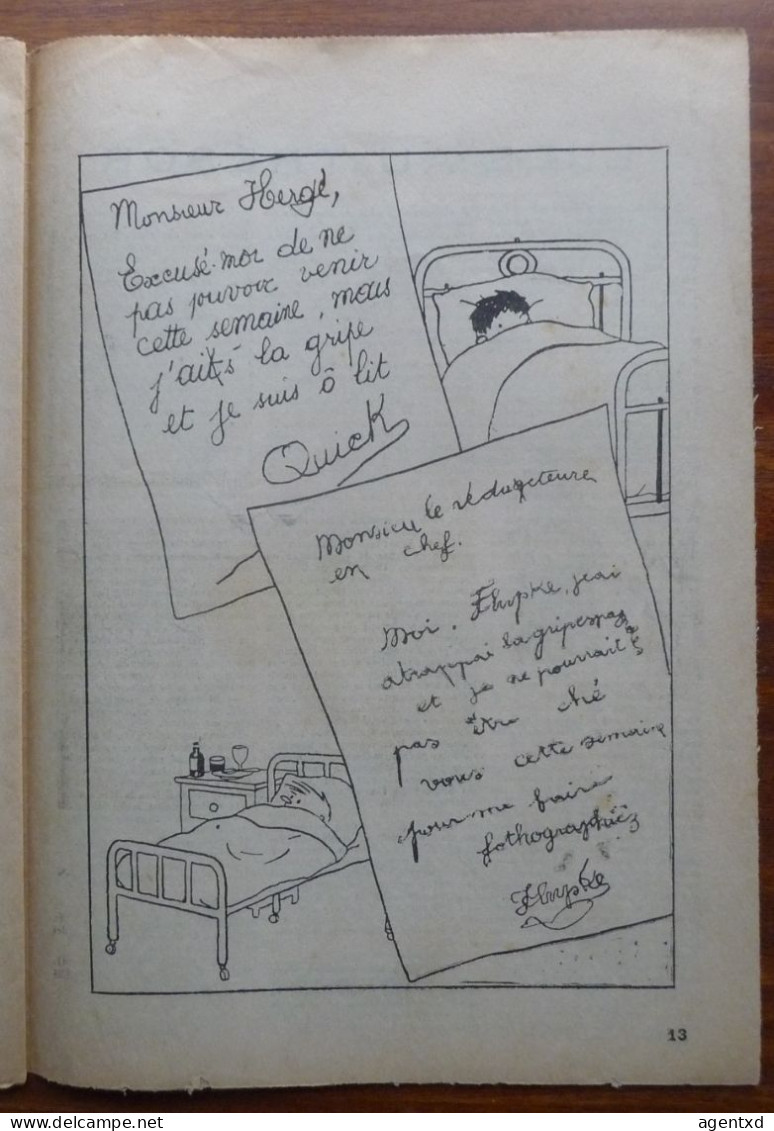 Monsieur Hergé,
Excusé-moi de ne
pas pouvoir venir
cette semaine, mais
j'ai la gripe
et je suis ô lit
Quick
Monsieu le réducteure
en chef.
Moi, Flupke, j'ai
atrappai la gripe
et je ne pourrait
pas être ché
vous cette semaine
pour me faire
fothographiéz
Flupke
13
www.delcampe.net
agentxd